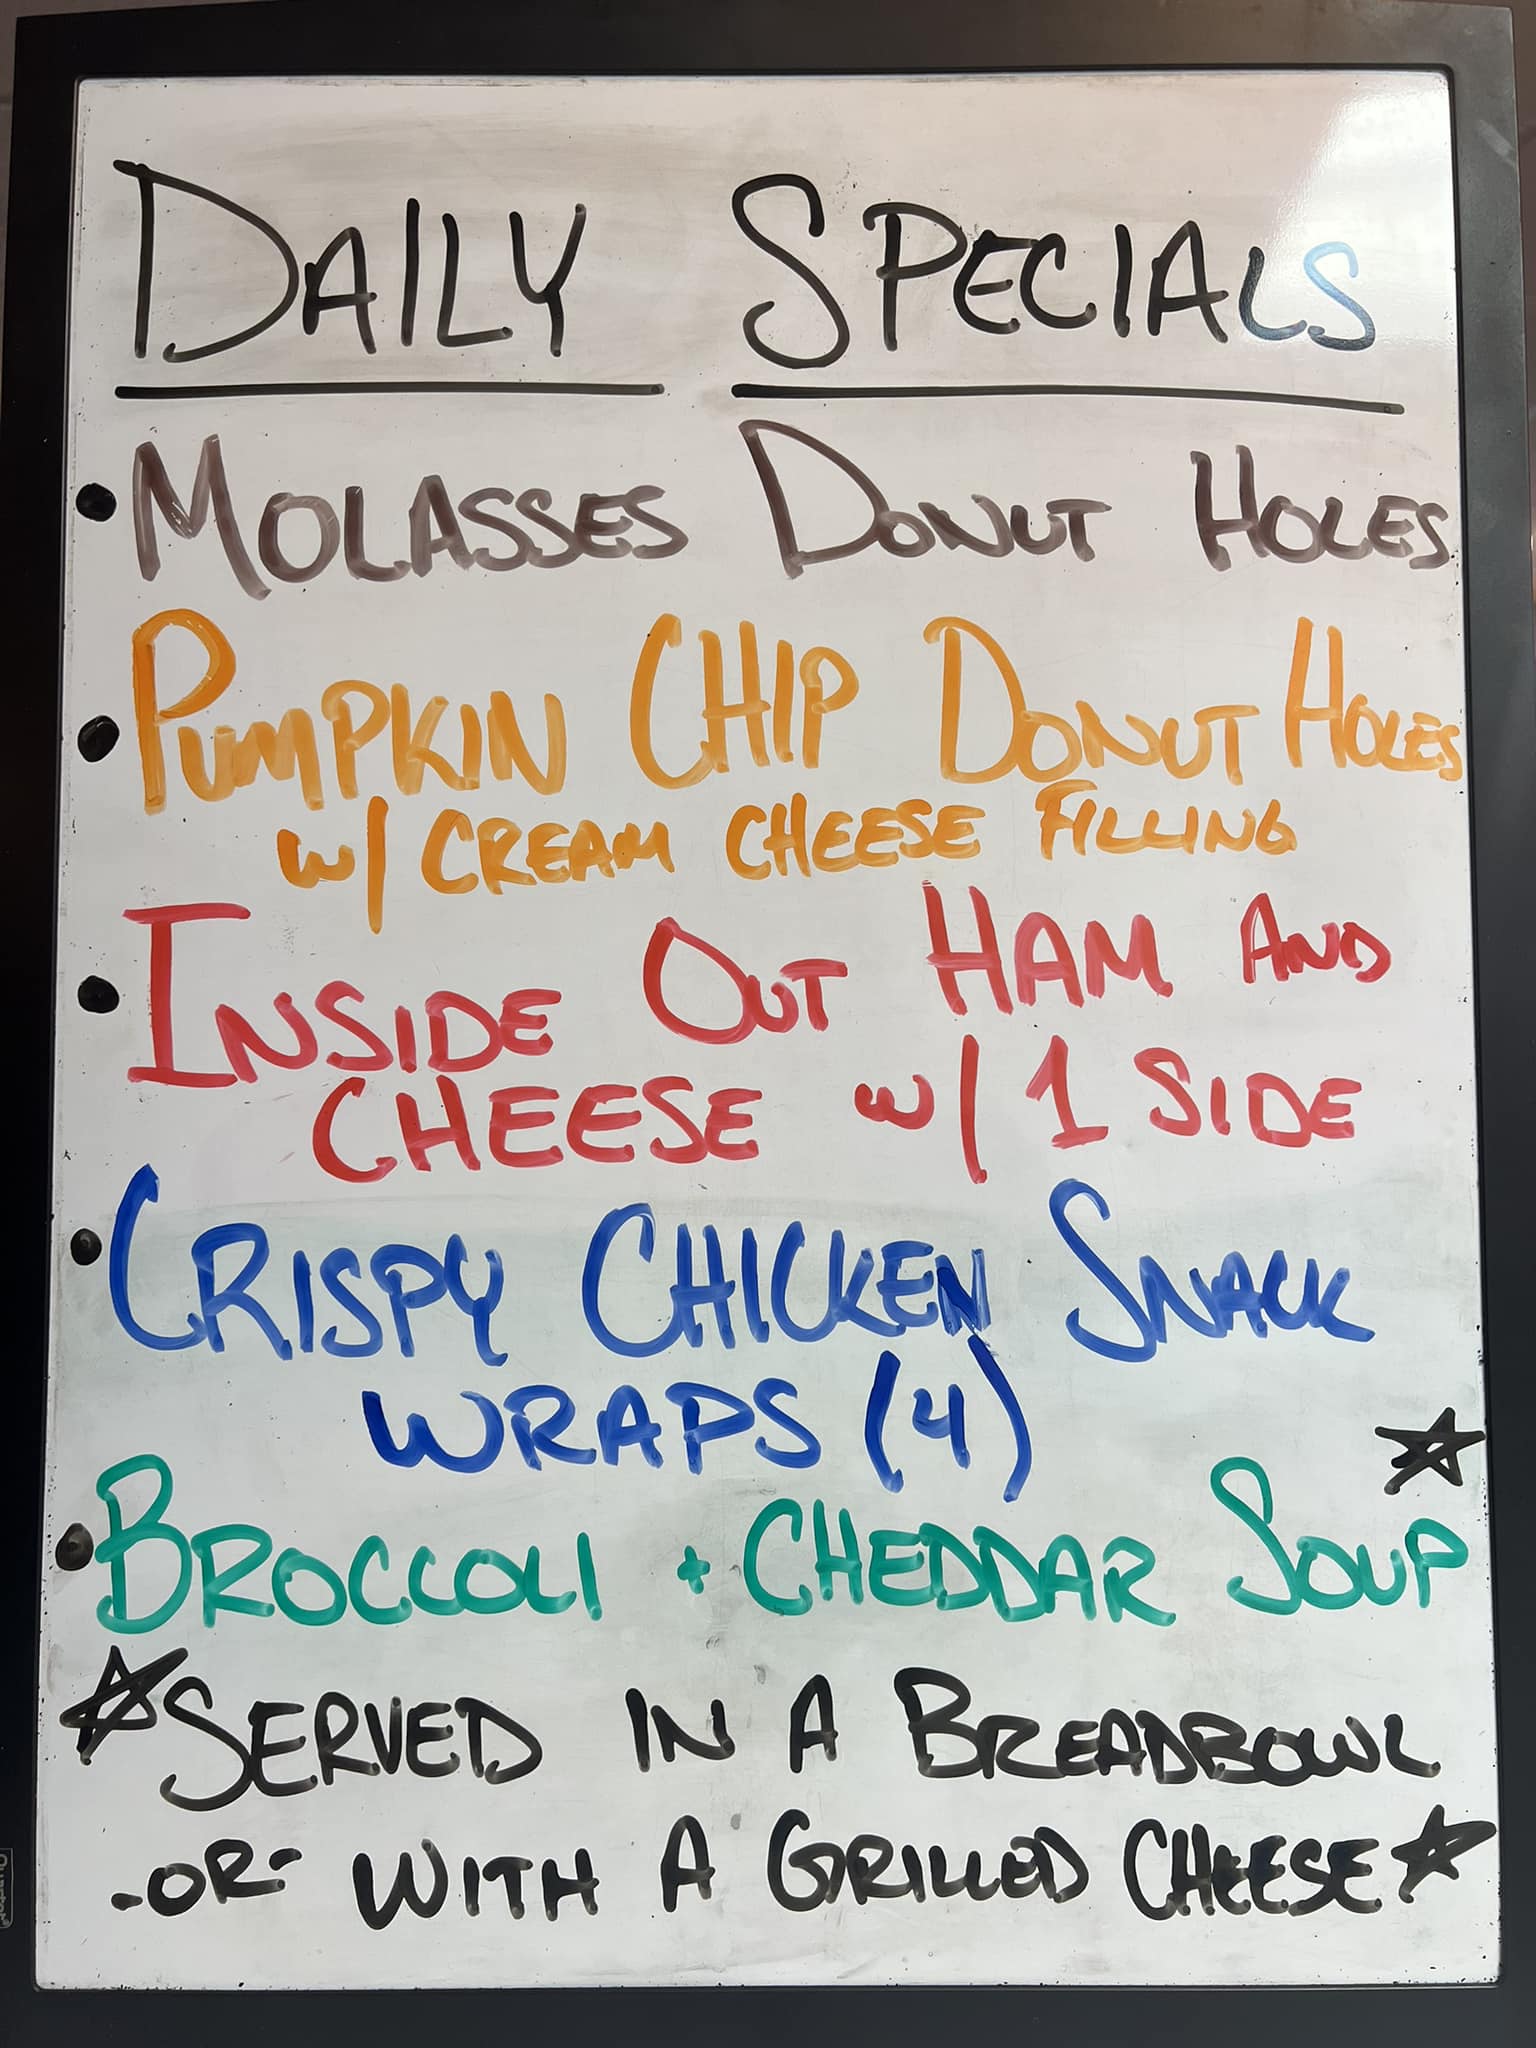 DAILY SPECIALS
• MOLASSES DONUT HOLES
• PUMPKIN CHIP DONUT HOLES
W/ CREAM CHEESE FILLING
• INSIDE OUT HAM AND
CHEESE W/ 1 SIDE
• CRISPY CHICKEN SNACK
WRAPS (4)
• BROCCOLI + CHEDDAR SOUP ☆
☆ SERVED IN A BREADBOWL
-OR- WITH A GRILLED CHEESE ☆
Quartet